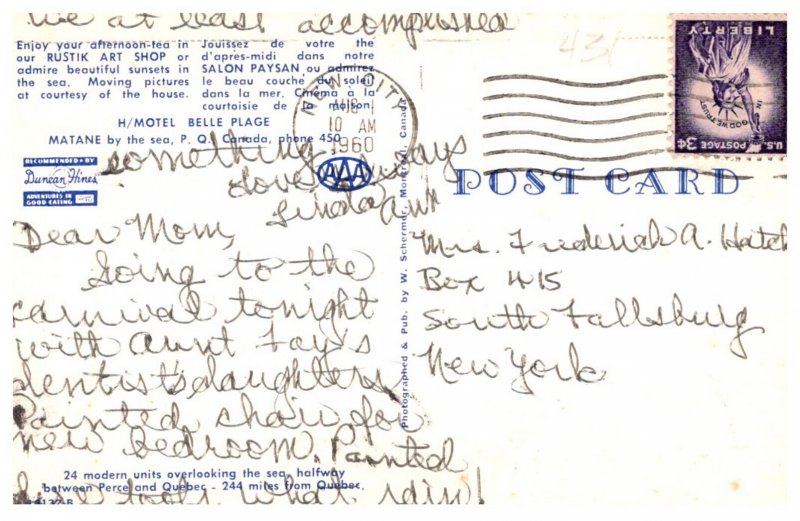 we at least accomplished
Enjoy your afternoon-tea in
our RUSTIK ART SHOP or
admire beautiful sunsets in
the sea. Moving pictures
at courtesy of the house.
Jouissez de votre thé
d'après-midi dans notre
SALON PAYSAN ou admirez
le beau couché du soleil
dans la mer. Cinéma à la
courtoisie de la maison.
H/MOTEL BELLE PLAGE
MATANE by the sea, P. Q. Canada, phone 450
something
Love always
Linda Ann
RECOMMENDED BY
Duncan Hines
ADVENTURES IN
GOOD EATING
AAA
Dear Mom,
Going to the
carnival tonight
with Aunt Fay's
dentist's daughters
Painted chair for
new bedroom. Painted
tools. What
24 modern units overlooking the sea, halfway
between Perce and Quebec - 244 miles from Quebec.
Photographed & Pub. by W. Schermer, Montreal, Canada
431
CITY
10 AM
1960
LIBERTY
IN GOD WE TRUST
U.S. POSTAGE 3¢
POST CARD
Mrs. Frederick A. Hatch
Box 415
South Fallsburg
New York